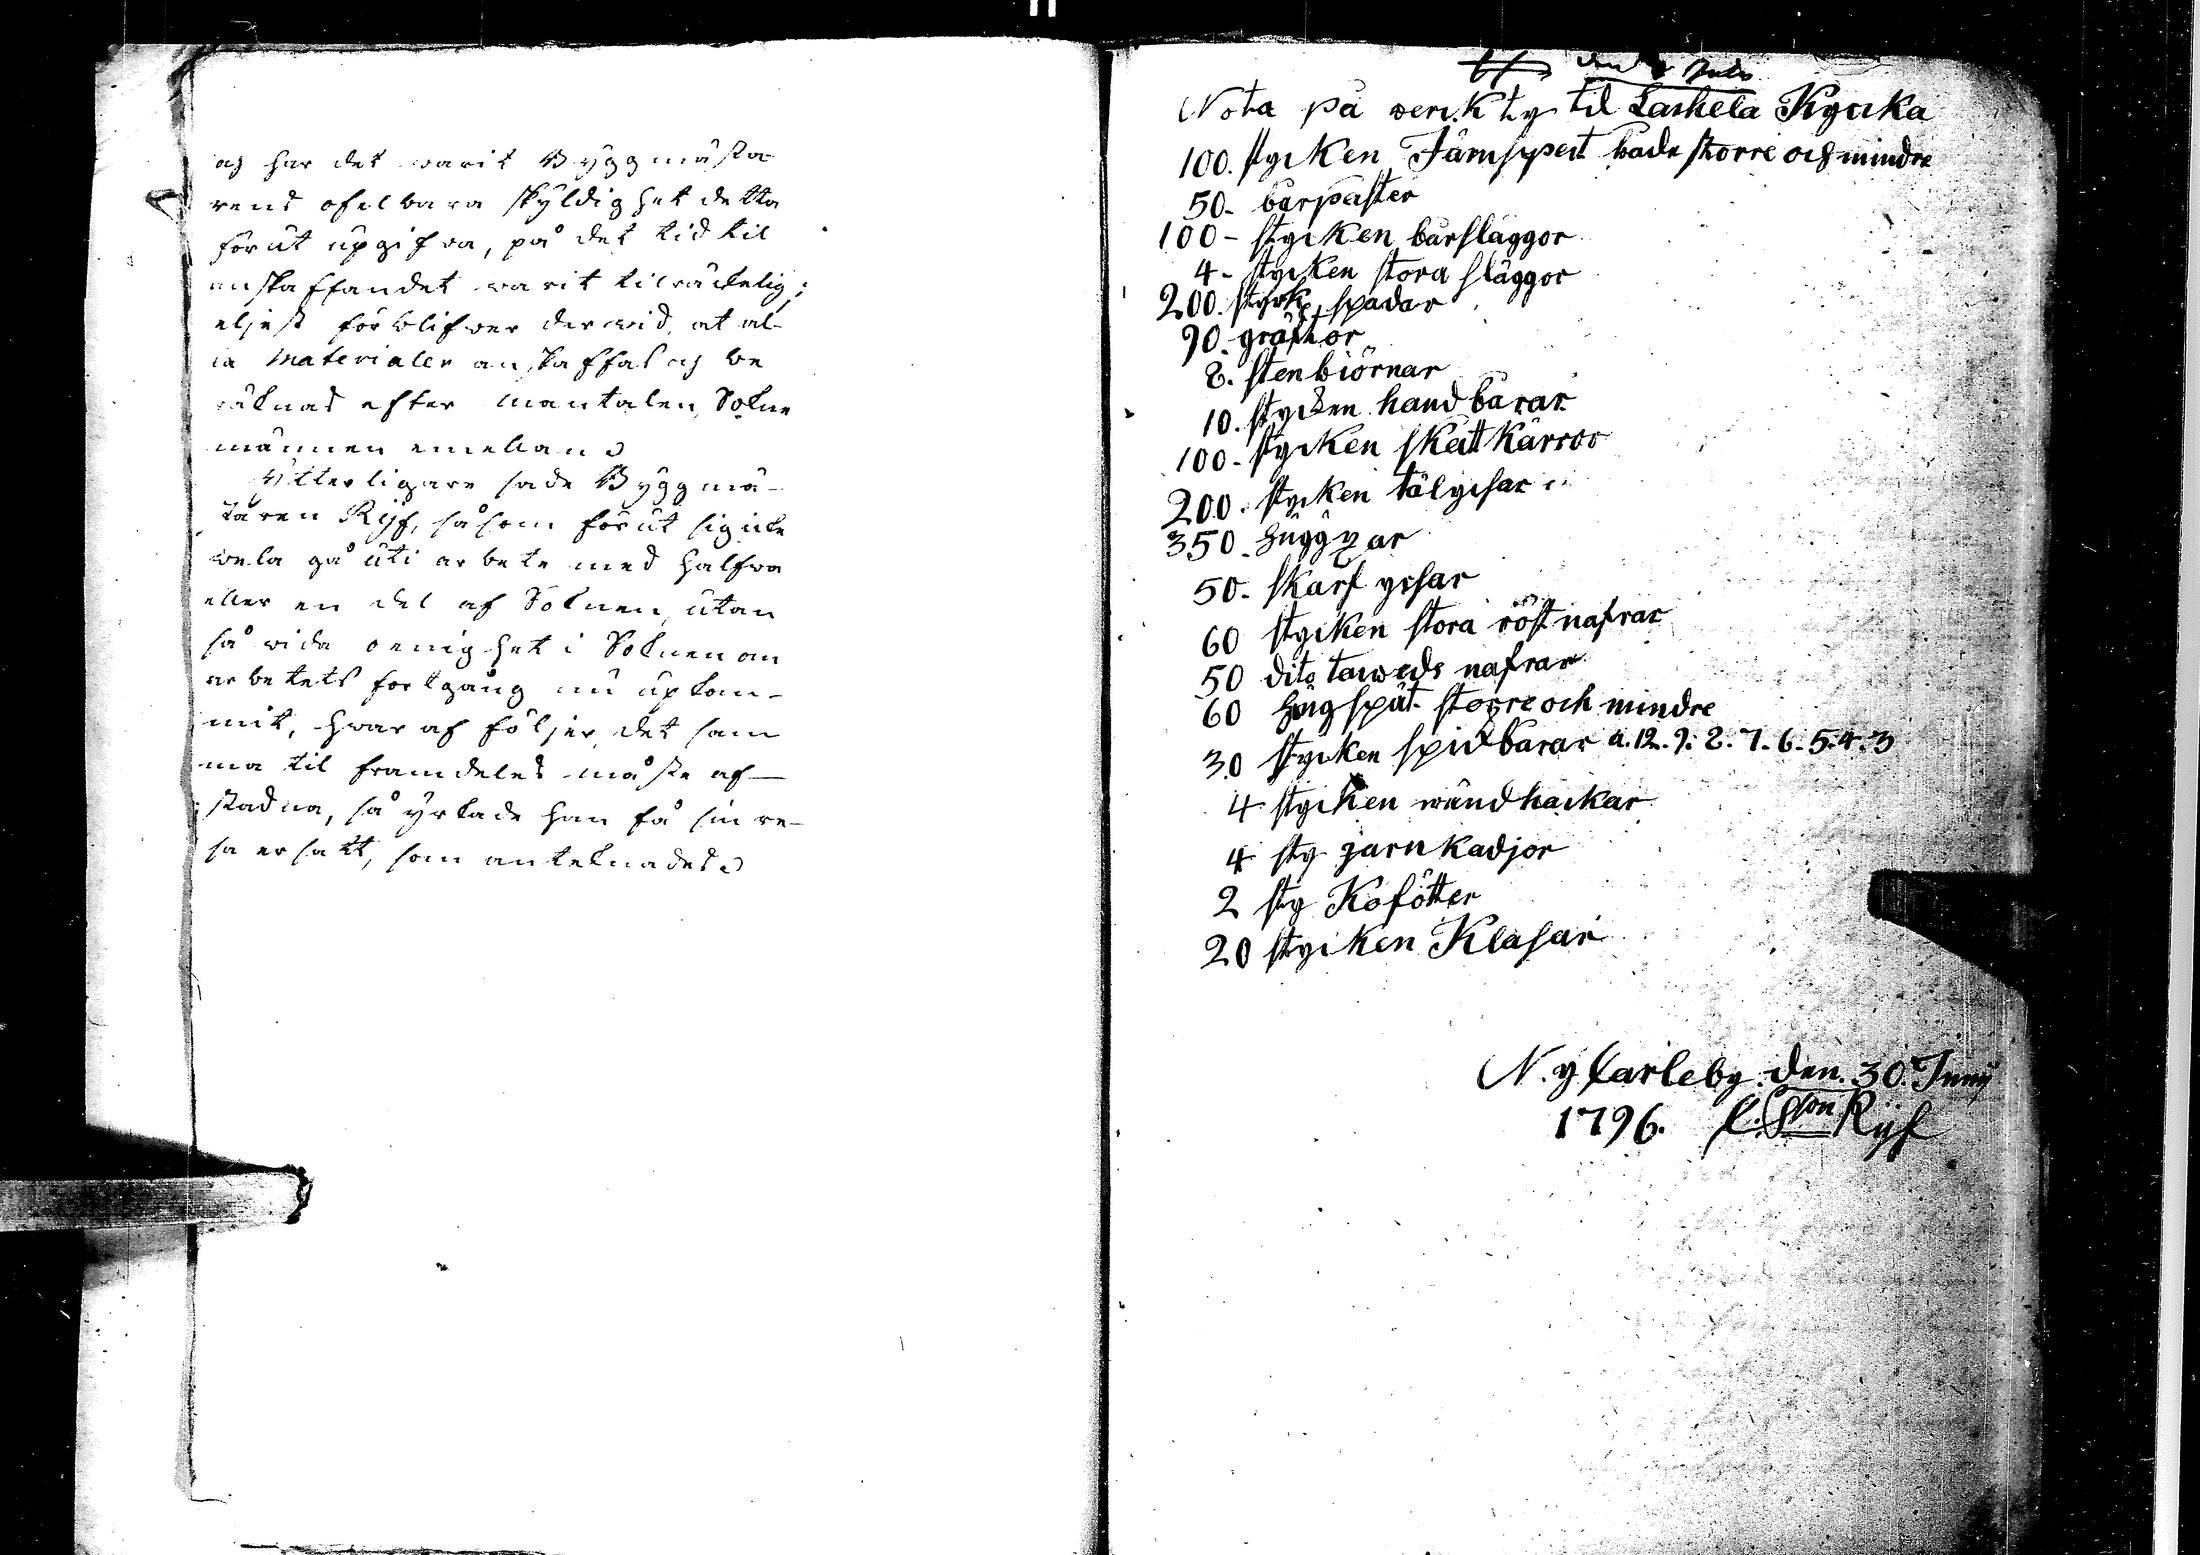 och har det warit Byggmästa
rens ofelbara skyldighet detta
förut upgifwa, på det tid til
anskaffandet warit tilräckelig;
eljest förblifwer derwid, at al-
la Materialer anskaffas och be
räknas efter Mantalen, Sokne
männen emellan
Ytterligare sade Byggmä-
staren Rijf, såsom förut sig icke
wela gå uti arbete med halfwa
eller en del af Soknen, utan
så wida oenighet i Soknen om
arbetets fortgång nu upkom-
mit, hwaraf följer, det sam
ma til framdeles måste af-
stadna, så yrkade han få sin re-
sa ersatt, som anteknades
Nota på werktyg til Laihela Kyrka
100. stycken Järnspett bade storre och mindre
50- barpaster
100- stycken barsläggor
4- stycken stora släggor
200. styck spadar
90. gräftor
8. stenbiörnar
10. stycken handbårar
100- stycken skottkärror
200. stycken tälgxsar
350. huggyxar
50. skarf yxsar
60 stycken stora röstnafrar
50 dito taweds nafrar
60 hugspät storre och mindre
30 stycken spickbårar a. 12. 9. 8. 7. 6. 5. 4. 3
4 stycken wändhackar
4 sty jarnkadjor
2 sty Kofötter
20 stycken Klasar
N. y Carleby den 30. Juny
1796. C. Rijf